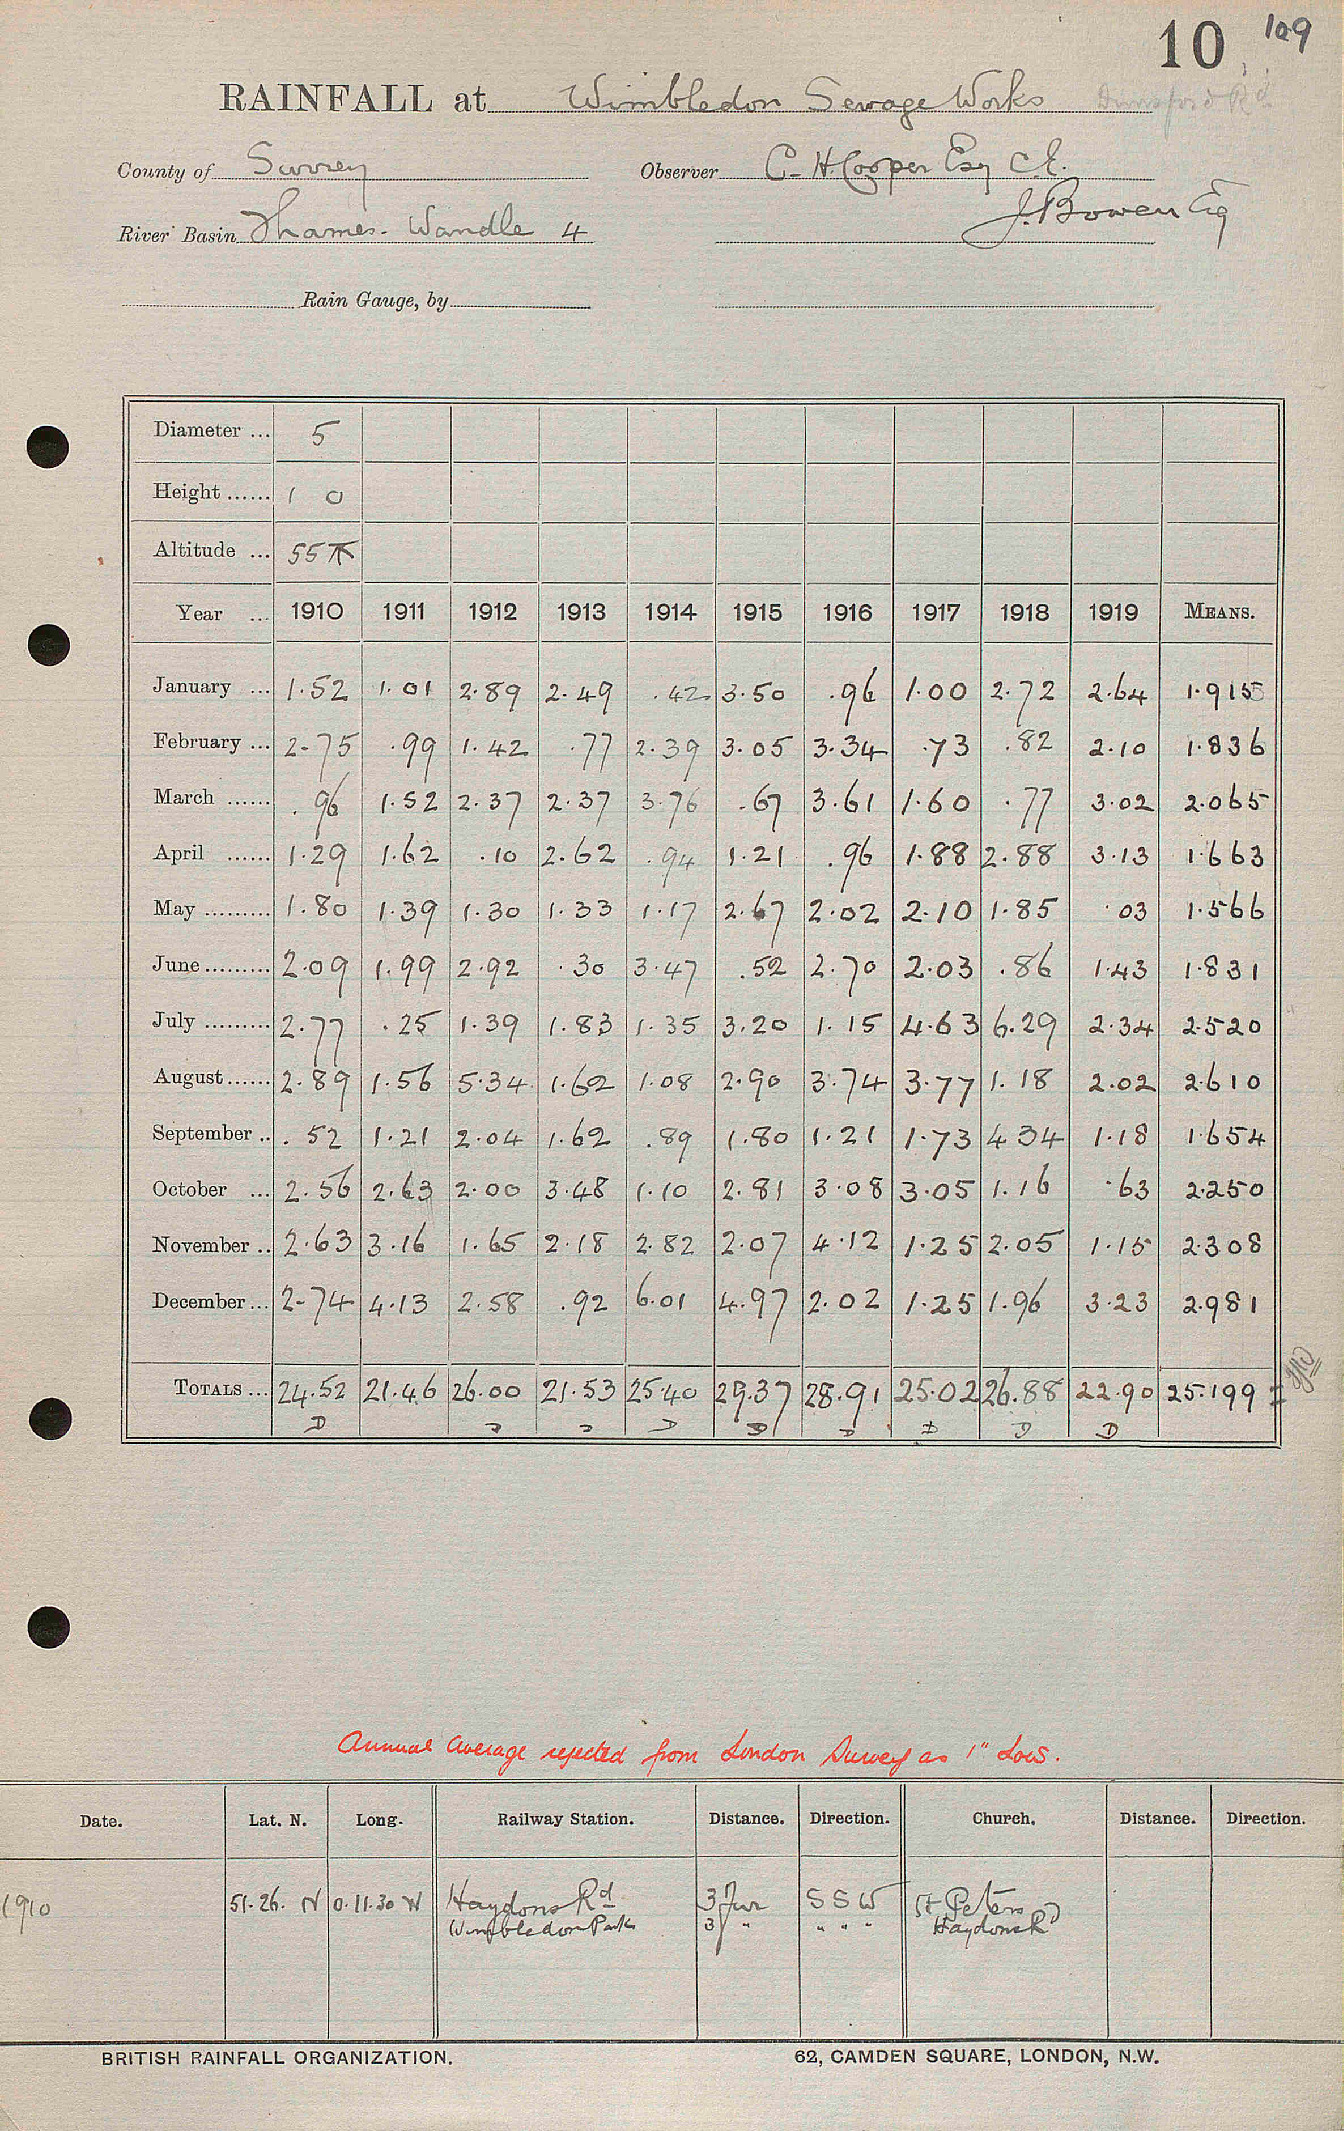 10 109
RAINFALL at Wimbledon Sewage Works Durnsford Rd
County of Surrey Observer C. H. Cooper Esq C.E.
River Basin Thames - Wandle 4 J. Bowen Esq
Rain Gauge, by
Diameter ... 5
Height ...... 1 0
Altitude ... 55
Year ... 1910 1911 1912 1913 1914 1915 1916 1917 1918 1919 MEANS.
January ... 1.52 1.01 2.89 2.49 .42 3.50 .96 1.00 2.72 2.64 1.915
February ... 2.75 .99 1.42 .77 2.39 3.05 3.34 .73 .82 2.10 1.836
March ...... .96 1.52 2.37 2.37 3.76 .67 3.61 1.60 .77 3.02 2.065
April ...... 1.29 1.62 .10 2.62 .94 1.21 .96 1.88 2.88 3.13 1.663
May ......... 1.80 1.39 1.30 1.33 1.17 2.67 2.02 2.10 1.85 .03 1.566
June ......... 2.09 1.99 2.92 .30 3.47 .52 2.70 2.03 .86 1.43 1.831
July ......... 2.77 .25 1.39 1.83 1.35 3.20 1.15 4.63 6.29 2.34 2.520
August ...... 2.89 1.56 5.34 1.62 1.08 2.90 3.74 3.77 1.18 2.02 2.610
September .. .52 1.21 2.04 1.62 .89 1.80 1.21 1.73 4 34 1.18 1.654
October ... 2.56 2.63 2.00 3.48 1.10 2.81 3.08 3.05 1.16 .63 2.250
November .. 2.63 3.16 1.65 2.18 2.82 2.07 4.12 1.25 2.05 1.15 2.308
December ... 2.74 4.13 2.58 .92 6.01 4.97 2.02 1.25 1.96 3.23 2.981
TOTALS ... 24.52 21.46 26.00 21.53 25.40 29.37 28.91 25.02 26.88 22.90 25.199
D D D D D D D D D
Annual Average rejected from London Survey as 1" Low.
Date. Lat. N. Long. Railway Station. Distance. Direction. Church. Distance. Direction.
1910 51.26. N 0.11.30 W Haydons Rd 3 Fur S S W St Peters
Wimbledon Park 3 " " " " Haydons Rd
BRITISH RAINFALL ORGANIZATION. 62, CAMDEN SQUARE, LONDON, N.W.